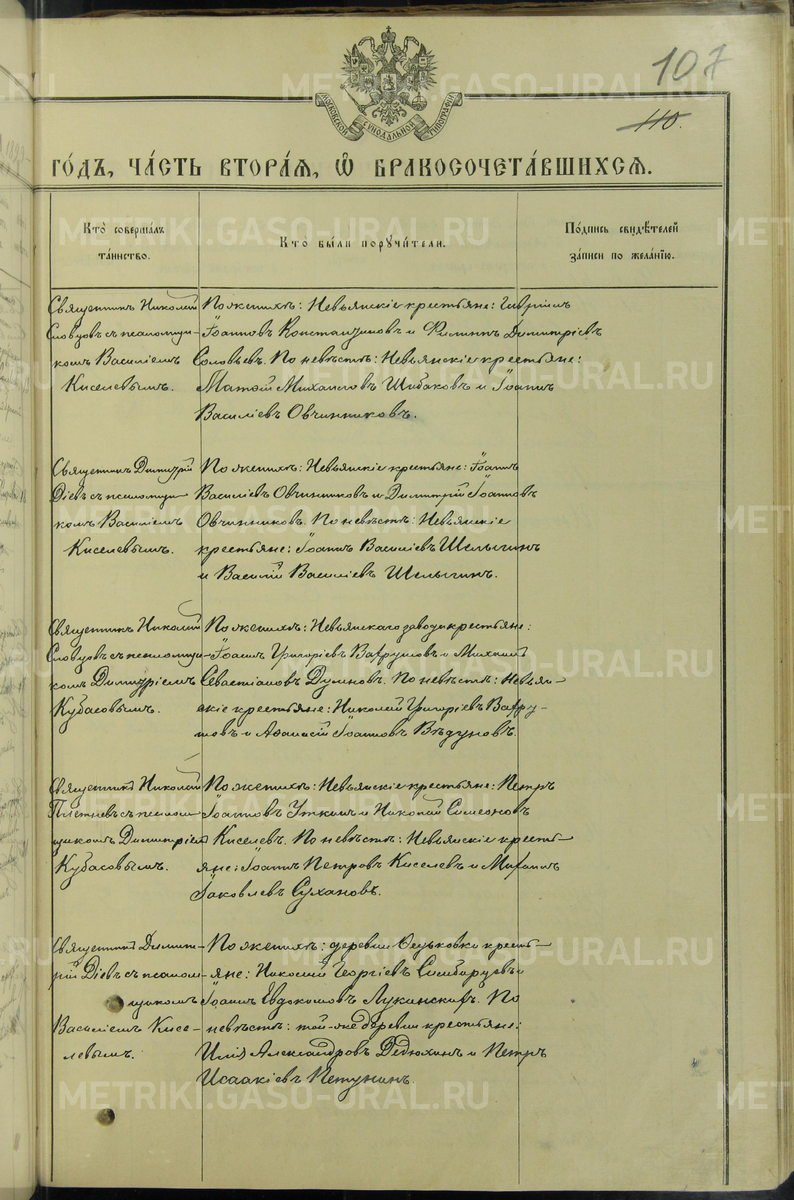 107
110.
МОСКОВСКОЙ СѴНОДАЛЬНОЙ ТИПОГРАФІИ
ГО́ДЪ, ЧА́СТЬ ВТОРА́Я, Ѽ БРАКОСОЧЕТА́ВШИХСЯ.
Кто̀ совершалъ
та́инство.
Кто были поручи́тели.
По́дпись свидѣ́телей
за́писи по жела́нію.
Священникъ Николай
Словцовъ съ псаломщи-
комъ Василіемъ
Киселевымъ.
По женихѣ: Невьянскіе крестьяне: Гавріилъ
Іоанновъ Константиновъ и Филиппъ Димитріевъ
Соловьевъ. По невѣстѣ: Невьянскіе крестьяне:
Матѳій Михаиловъ Шибаковъ и Іоаннъ
Василіевъ Овчинниковъ.
Священникъ Димитрій
Діевъ съ псаломщи-
комъ Василіемъ
Киселевымъ.
По женихѣ: Невьянскіе крестьяне: Іоаннъ
Василіевъ Овчинниковъ и Димитрій Іоанновъ
Овчинниковъ. По невѣстѣ: Невьянскіе
крестьяне: Іоаннъ Василіевъ Шелыгинъ
и Василій Василіевъ Шелыгинъ.
Священникъ Николай
Словцовъ съ псаломщи-
комъ Димитріемъ
Кубасовымъ.
По женихѣ: Невьянскаго завода крестьяне:
Іоаннъ Григоріевъ Вахрушовъ и Михаилъ
Севастіановъ Думновъ. По невѣстѣ: Невьян-
скіе крестьяне: Николай Григоріевъ Вахру-
шовъ и Аѳанасій Іоанновъ Вѣдуновъ.
Священникъ Николай
Плетневъ съ псалом-
щикомъ Димитріемъ
Кубасовымъ.
По женихѣ: Невьянскіе крестьяне: Петръ
Іоанновъ Уткинъ и Николай Симеоновъ
Киселевъ. По невѣстѣ: Невьянскіе кресть-
яне: Іоаннъ Петровъ Киселевъ и Михаилъ
Іаковлевъ Сухановъ.
Священникъ Димит-
рій Діевъ съ псалом-
щикомъ
Василіемъ Кисе-
левымъ.
По женихѣ: деревни Ѳедьковки кресть-
яне: Николай Георгіевъ Симбирцевъ и
Іоаннъ Евдокимовъ Лукинскихъ. По
невѣстѣ: той-же деревни крестьяне:
Илія Александровъ Дедюхинъ и Петръ
Исаакіевъ Петунинъ.
METRIKI.GASO-URAL.RU